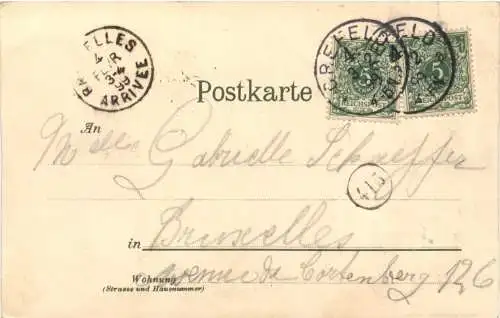 BRUXELLES
4
FEVR
3-4
99
ARRIVEE
CREFELD
4 2
REICHSPOST
5
REICHSPOST
Postkarte
An
Melle Gabrielle Schaeffer
413
in Bruxelles
Wohnung
(Strasse und Hausnummer)
avenue de Cortenberg 126